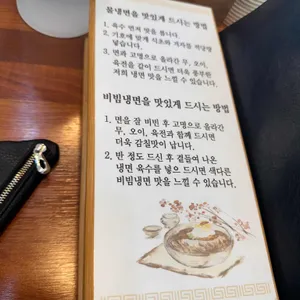 물냉면을 맛있게 드시는 방법
1. 육수 먼저 맛을 봅니다.
2. 기호에 맞게 식초와 겨자를 적당량
넣습니다.
3. 면과 고명으로 올라간 무, 오이,
육전을 같이 드시면 더욱 풍부한
저희 냉면 맛을 느낄 수 있습니다.
비빔냉면을 맛있게 드시는 방법
1. 면을 잘 비빈 후 고명으로 올라간
무, 오이, 육전과 함께 드시면
더욱 감칠맛이 납니다.
2. 반 정도 드신 후 곁들여 나온
냉면 육수를 넣으 드시면 색다른
비빔냉면 맛을 느낄 수 있습니다.